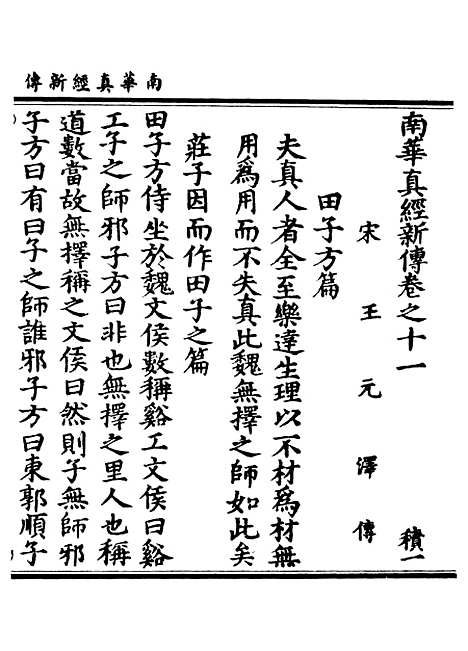 南華真經新傳
南華真經新傳卷之十一 積一
宋王元澤傳
田子方篇
夫真人者全至樂達生理以不材為材無
用為用而不失真此魏無擇之師如此矣
莊子因而作田子之篇
田子方侍坐於魏文侯數稱谿工文侯曰谿
工子之師邪子方曰非也無擇之里人也稱
道數當故無擇稱之文侯曰然則子無師邪
子方曰有曰子之師誰邪子方曰東郭順子